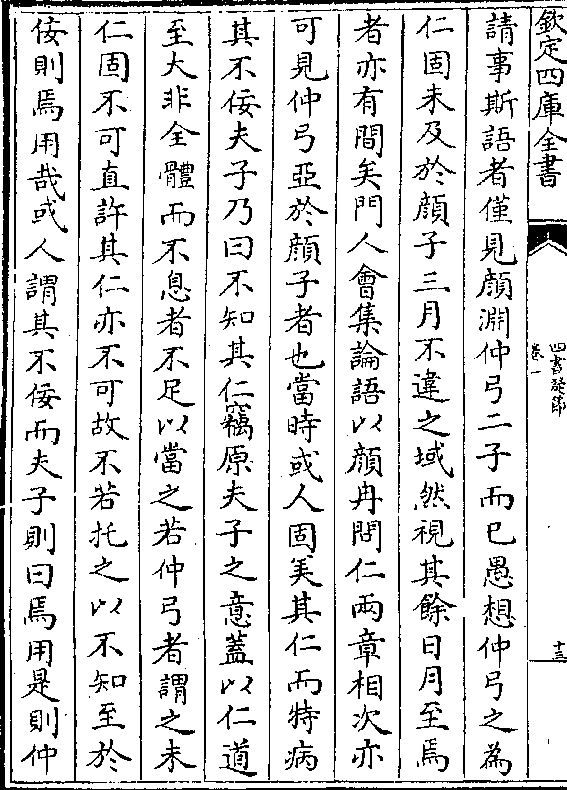 欽定四庫全書
四書疑節
卷一
十三
請事斯語者僅見顔淵仲弓二子而已愚想仲弓之為
仁固未及於顔子三月不違之域然視其餘日月至焉
者亦有間矣門人會集論語以顔冉問仁兩章相次亦
可見仲弓亞於顔子者也當時或人固美其仁而特病
其不佞夫子乃曰不知其仁竊原夫子之意蓋以仁道
至大非全體而不息者不足以當之若仲弓者謂之未
仁固不可直許其仁亦不可故不若托之以不知至於
佞則焉用哉或人謂其不佞而夫子則曰焉用是則仲